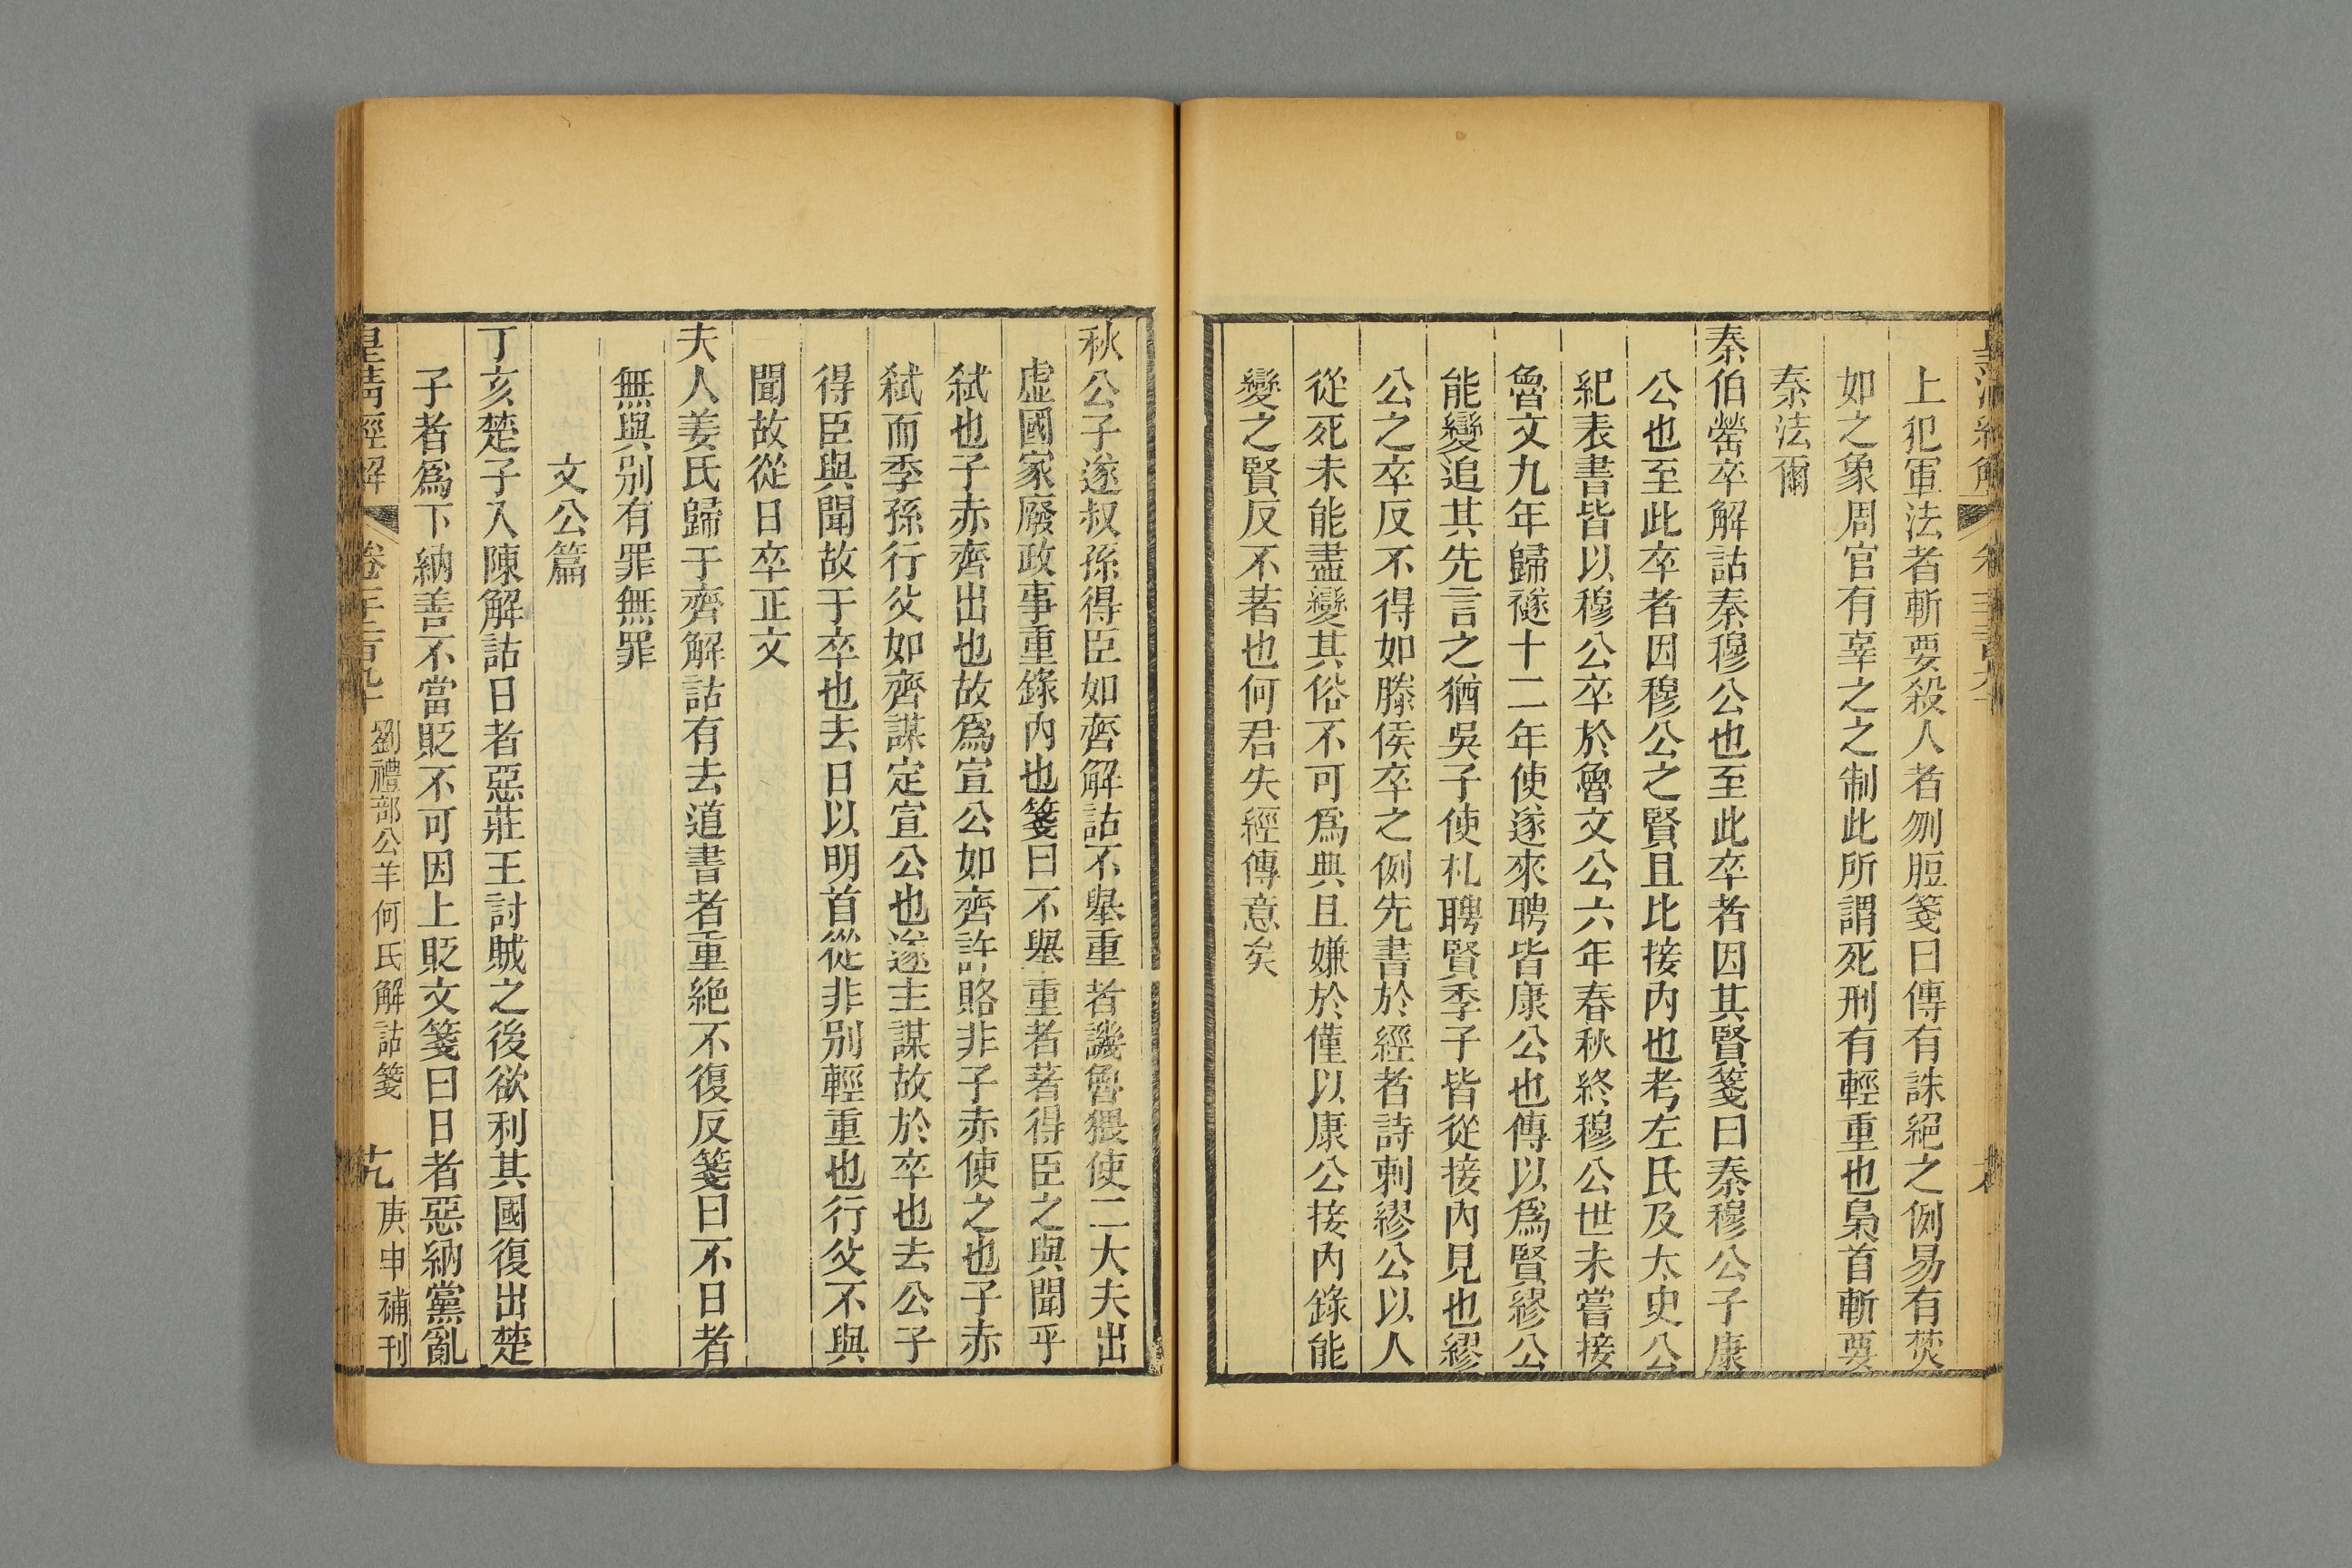 上犯軍法者斬要殺人者刎脰箋曰傳有誅絕之例易有焚
如之象周官有辜之之制此所謂死刑有輕重也梟首斬要
秦法爾
秦伯罃卒解詁秦穆公也至此卒者因其賢箋曰秦穆公子康
公也至此卒者因穆公之賢且比接內也考左氏及太史公
紀表書皆以穆公卒於魯文公六年春秋終穆公世未嘗接
魯文九年歸襚十二年使遂來聘皆康公也傳以爲賢繆公
能變追其先言之猶吳子使札聘賢季子皆從接內見也繆
公之卒反不得如滕侯卒之例先書於經者詩刺繆公以人
從死未能盡變其俗不可爲典且嫌於僅以康公接內錄能
變之賢反不著也何君失經傳意矣
秋公子遂叔孫得臣如齊解詁不舉重者譏魯猥使二大夫出
虛國家廢政事重錄內也箋曰不舉重者著得臣之與聞乎
弑也子赤齊出也故爲宣公如齊許賂非子赤使之也子赤
弑而季孫行父如齊謀定宣公也遂主謀故於卒也去公子
得臣與聞故于卒也去日以明首從非別輕重也行父不與
聞故從日卒正文
夫人姜氏歸于齊解詁有去道書者重絕不復反箋曰不日者
無與別有罪無罪
文公篇
丁亥楚子入陳解詁日者惡莊王討賊之後欲利其國復出楚
子者爲下納善不當貶不可因上貶文箋曰日者惡納黨亂
皇清經解
卷千二百九十
劉禮部公羊何氏解詁箋
庚申補刊